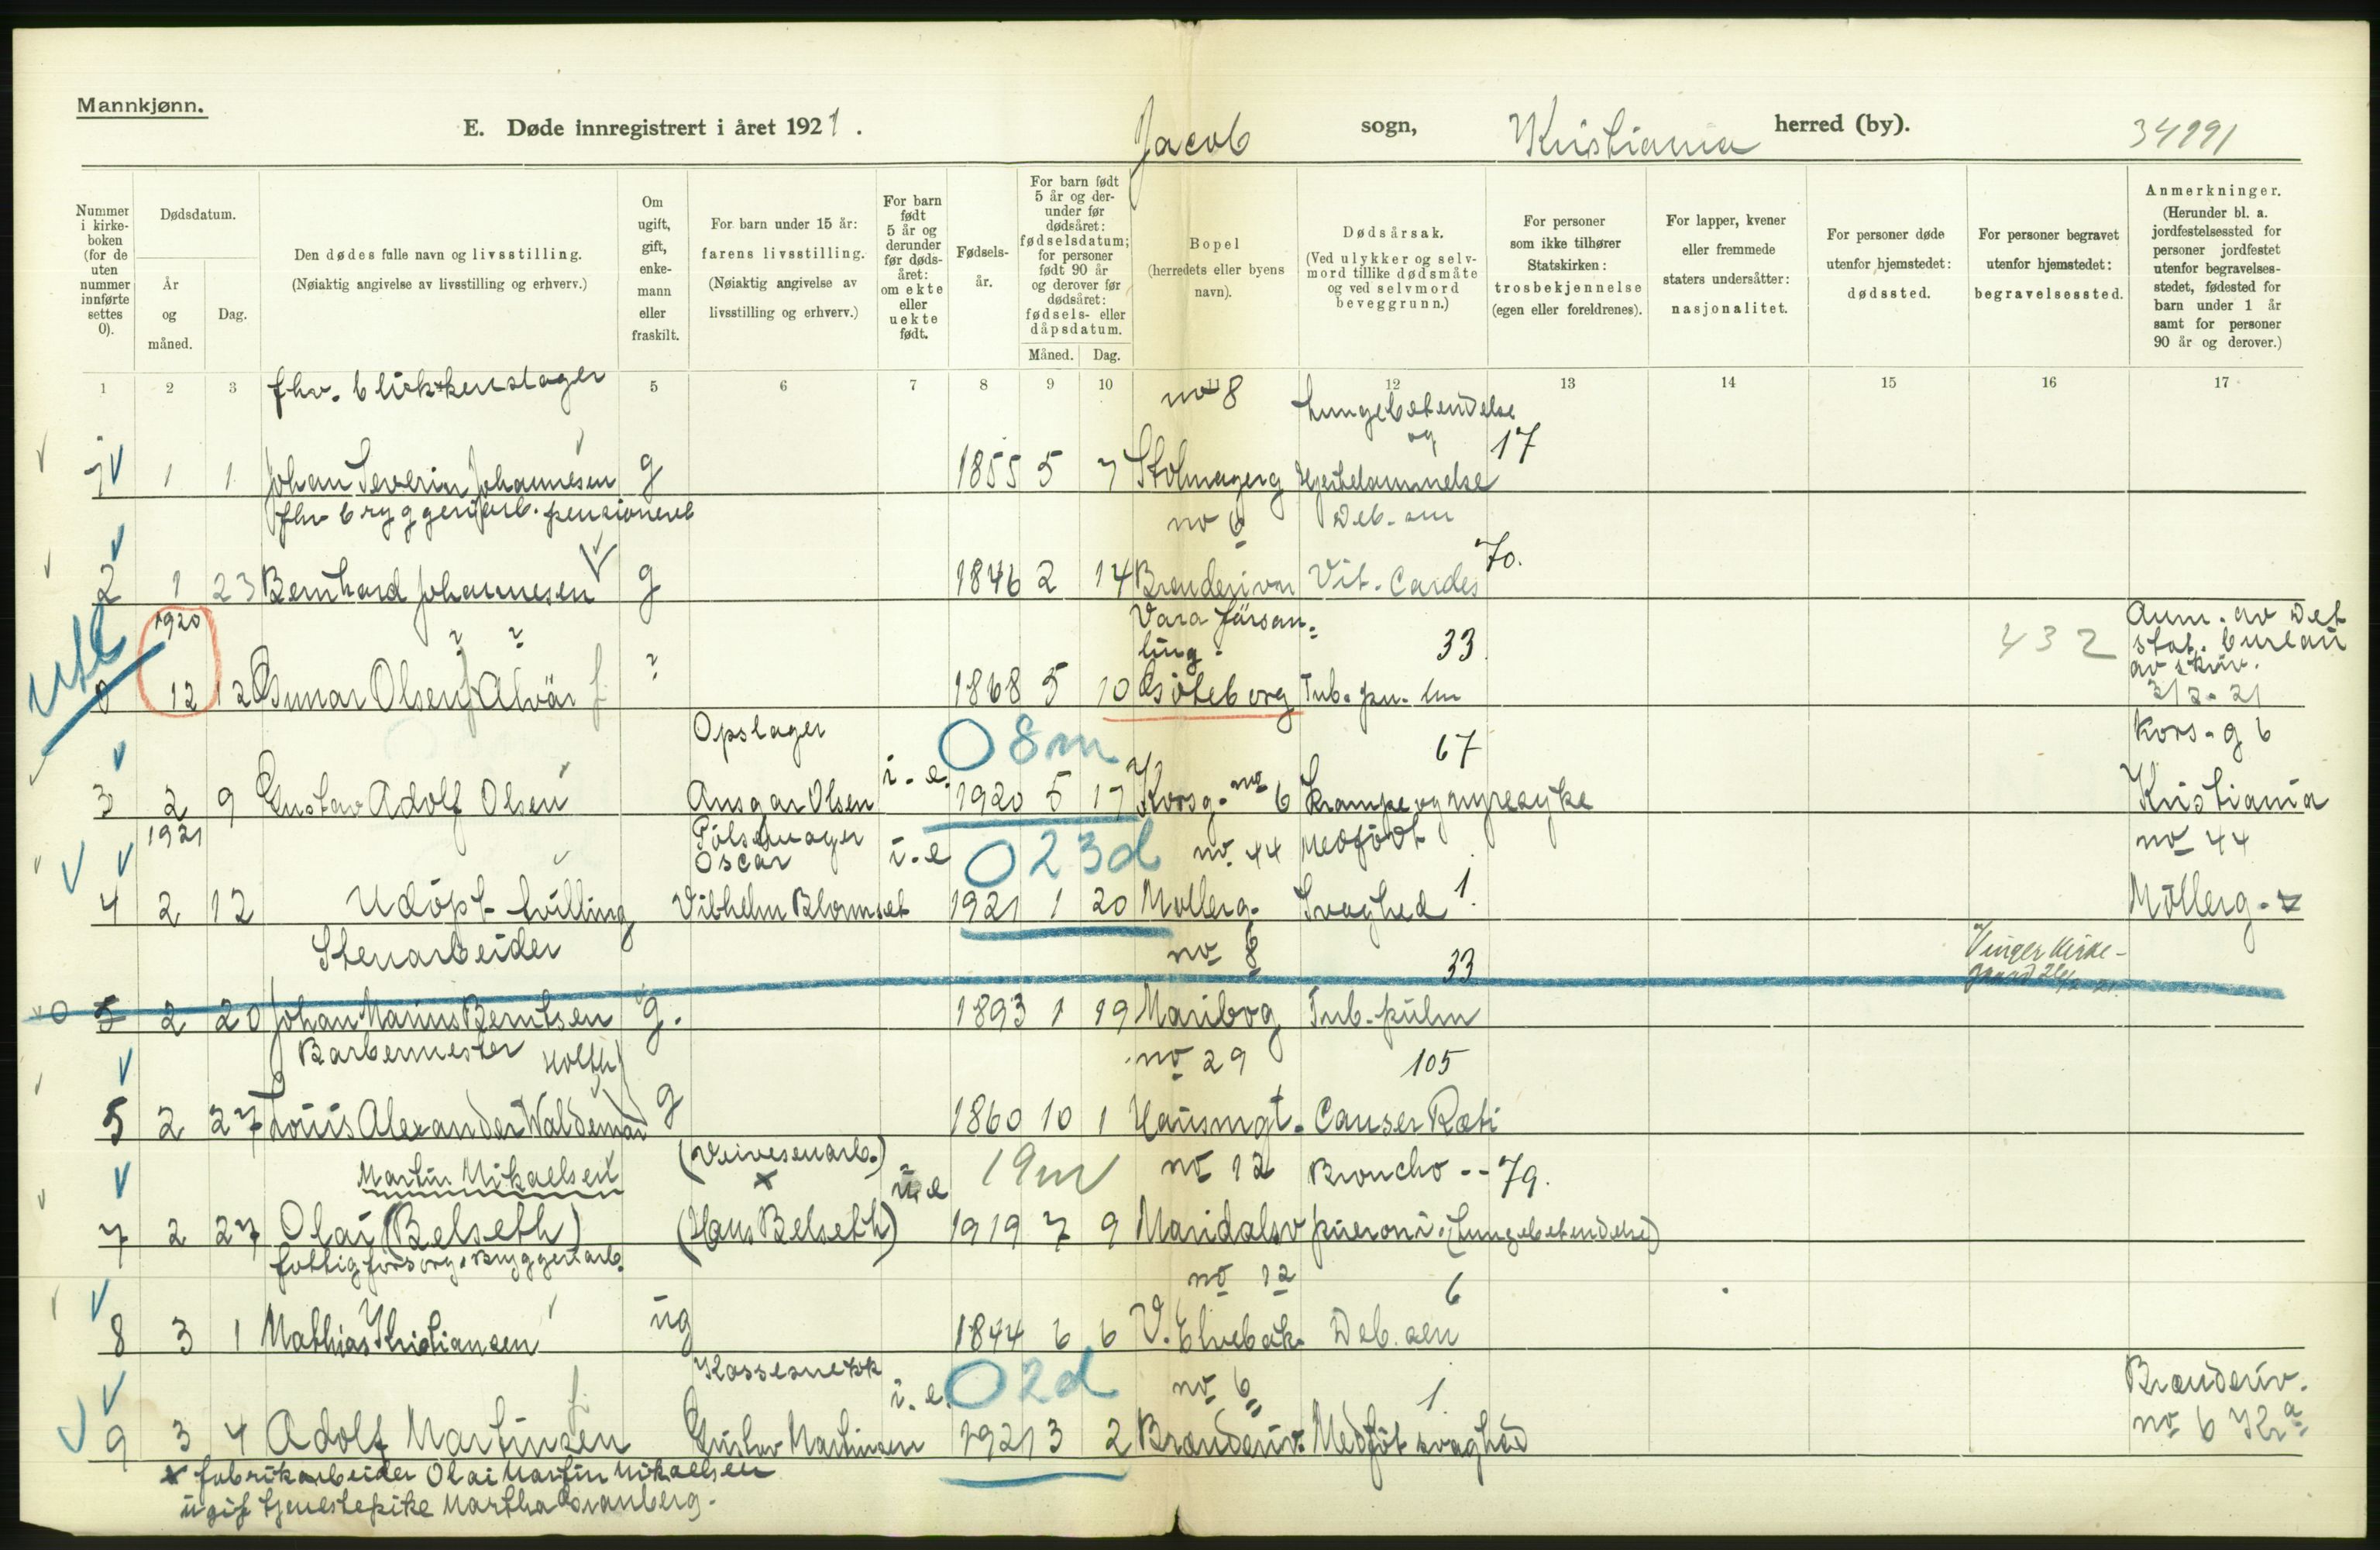 Mannkjønn.
E. Døde innregistrert i året 1921.
Jacob sogn, Kristiania herred (by).
34991
Nummer i kirkeboken (for de uten nummer innførte settes 0).
Dødsdatum.
År og måned.
Dag.
Den dødes fulle navn og livsstilling.
(Nøiaktig angivelse av livsstilling og erhverv.)
Om ugift, gift, enkemann eller fraskilt.
For barn under 15 år: farens livsstilling.
(Nøiaktig angivelse av livsstilling og erhverv.)
For barn født 5 år og derunder før dødsåret: om ekte eller uekte født.
Fødselsår.
For barn født 5 år og derunder før dødsåret: fødselsdatum; for personer født 90 år og derover før dødsåret: fødsels- eller dåpsdatum.
Måned. Dag.
Bopel
(herredets eller byens navn).
Dødsårsak.
(Ved ulykker og selvmord tillike dødsmåte og ved selvmord beveggrunn.)
For personer som ikke tilhører Statskirken: trosbekjennelse (egen eller foreldrenes).
For lapper, kvener eller fremmede staters undersåtter: nasjonalitet.
For personer døde utenfor hjemstedet: dødssted.
For personer begravet utenfor hjemstedet: begravelsessted.
Anmerkninger.
(Herunder bl. a. jordfestelsessted for personer jordfestet utenfor begravelsesstedet, fødested for barn under 1 år samt for personer 90 år og derover.)
1 2 3 5 6 7 8 9 10 11 12 13 14 15 16 17
fhv. blikkenslager no 8 Lungebetendelse og 17
1 1 1 Johan Severin Johannesen g 1855 5 7 Stolmagerg Hjertelammelse
fhv bryggeriarb. pensioneret no 6 Deb. sen
2 1 23 Bernhard Johannesen g 1846 2 14 Brenderivn Vit. Cordis 70.
Ute 1920 Vara församling. 33 432 Anm. av Det stat. bureau av skriv. 3/2-21
0 12 12 Gunar Olsen Alvär ? 1868 5 10 Göteborg Tub. pu. lm
Opslager i.e. 0 8m 67 Kors.g 6
3 2 9 Gustav Adolf Olsen Ansgar Olsen 1920 5 17 Korsg. no 6 Krampe og nyresyke Kristiania
1921 Pølsemager Oscar i.e 0 23d no. 44 Medfödt no 44
4 2 12 Udöpt tvilling Vilhelm Blomset 1921 1 20 Mollerg. Svaghed 1. Möllerg.
Stenarbeider no 8 33 Vinger Kirkegaard
0 5 2 20 Johan Marius Berntsen g. 1893 1 19 Maribog Tub. pulm
Barbermester Holth no 29 105
5 2 27 Louis Alexander Valdemar g 1860 10 1 Hausmgt. Cancer Recti
Martin Mikaelsen (Veivesenarb.) x u.e 19m no 12 Broncho -- 79.
7 2 27 Olai (Belseth) (Hans Belseth) 1919 7 9 Maridalsv pneuoni. (Lungebetendelse)
fattigforsorg. Bryggeriarb. no 12 6
8 3 1 Mathias Kristiansen ug 1844 6 6 V. Elvebak. Deb. sen
Kassesnekk i.e. 0 2d no 6 1. Brenderiv.
9 3 4 Adolf Martinsen Gustav Martinsen 1921 3 2 Brenderiv. Medföt svaghed no 6 Kra
x fabrikarbeider Olai Martin Mikaelsen
ugif tjenestepike Martha Granberg.